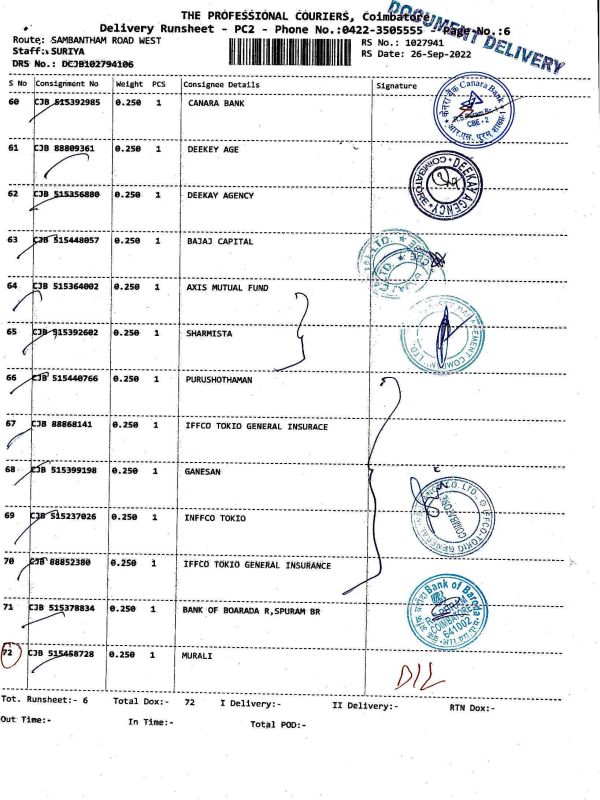 THE PROFESSIONAL COURIERS, Coimbatore
DOCUMENT DELIVERY
Delivery Runsheet - PC2 - Phone No.:0422-3505555 Page No.:6
Route: SAMBANTHAM ROAD WEST
RS No.: 1027941
Staff: SURIYA
RS Date: 26-Sep-2022
DRS No.: DCJB102794106
S No Consignment No Weight PCS Consignee Details Signature
60 CJB 515392985 0.250 1 CANARA BANK
केनरा बैंक Canara Bank
CBE - 2
61 CJB 88809361 0.250 1 DEEKEY AGE
DEEKAY AGENCY
COIMBATORE
62 CJB 515356880 0.250 1 DEEKAY AGENCY
63 CJB 515448057 0.250 1 BAJAJ CAPITAL
64 CJB 515364002 0.250 1 AXIS MUTUAL FUND
65 CJB 515392602 0.250 1 SHARMISTA
66 CJB 515440766 0.250 1 PURUSHOTHAMAN
67 CJB 88868141 0.250 1 IFFCO TOKIO GENERAL INSURACE
68 CJB 515399198 0.250 1 GANESAN
69 CJB 515237026 0.250 1 INFFCO TOKIO
IFFCO-TOKIO GENERAL
CO. LTD.
COIMBATORE
70 CJB 88852380 0.250 1 IFFCO TOKIO GENERAL INSURANCE
71 CJB 515378834 0.250 1 BANK OF BOARADA R,SPURAM BR
Bank of Baroda
COIMBATORE
641002
72 CJB 515458728 0.250 1 MURALI
D/L
Tot. Runsheet:- 6 Total Dox:- 72 I Delivery:- II Delivery:- RTN Dox:-
Out Time:- In Time:- Total POD:-